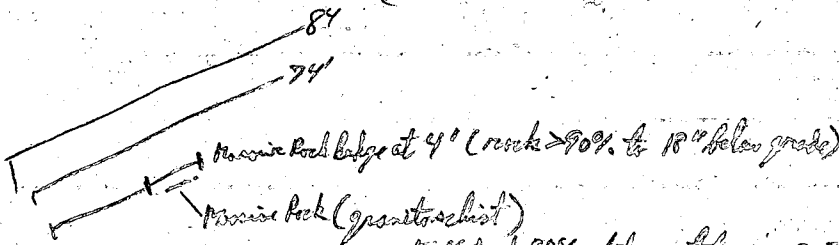 84
74'
Massive Rock ledge at 4' (rock >90% to 18" below grade)
Massive Rock (granite schist)